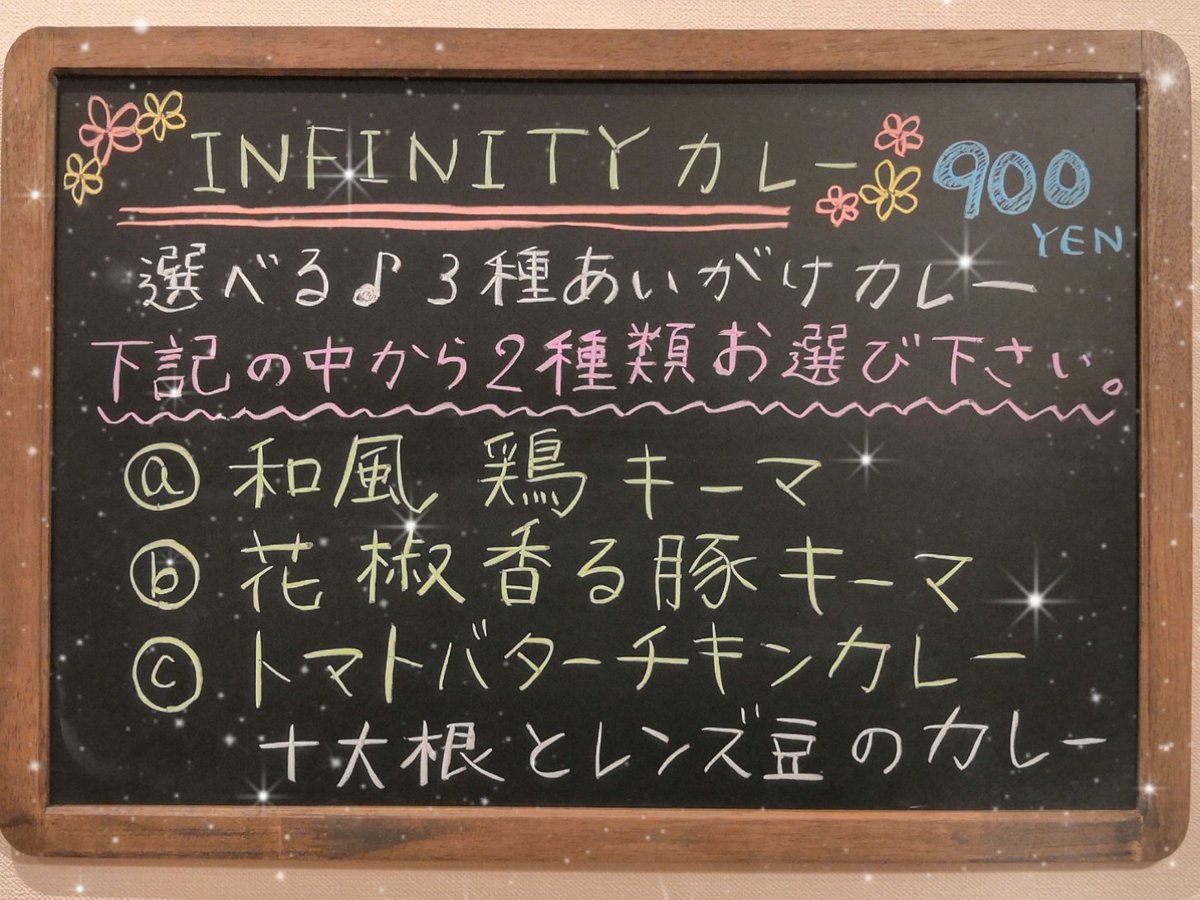 INFINITYカレー 900
YEN
選べる♪3種あいがけカレー
下記の中から2種類お選び下さい。
ⓐ 和風 鶏キーマ
ⓑ 花椒香る豚キーマ
ⓒ トマトバターチキンカレー
+大根とレンズ豆のカレー